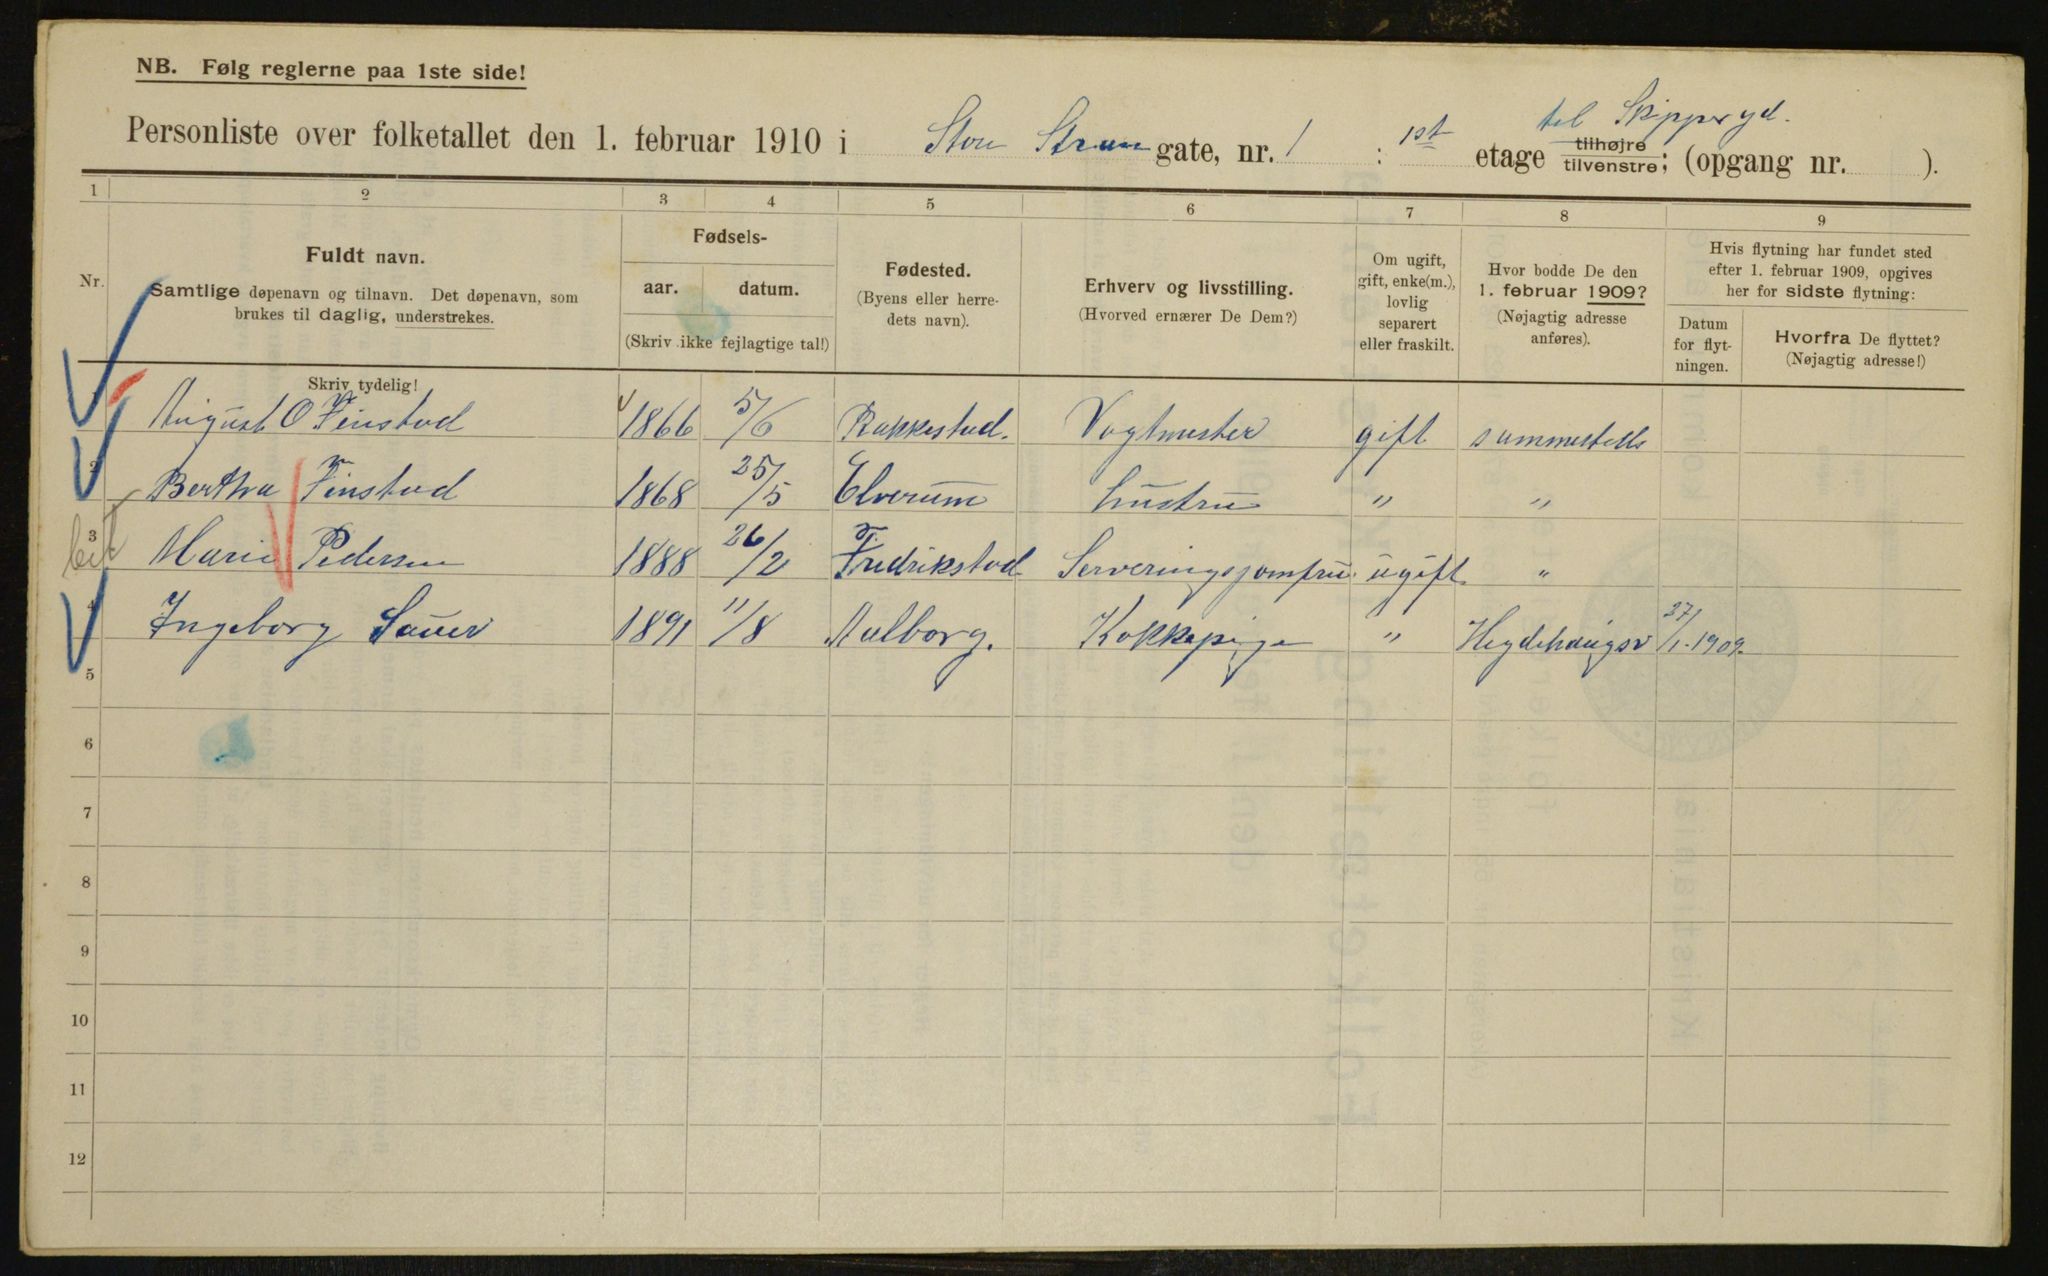 NB. Følg reglerne paa 1ste side!
til Skippergd.
Personliste over folketallet den 1. februar 1910 i Store Strand gate, nr. 1 : 1st etage tilhøjre tilvenstre; (opgang nr. ).
1 2 3 4 5 6 7 8 9
Nr.
Fuldt navn.
Samtlige døpenavn og tilnavn. Det døpenavn, som
brukes til daglig, understrekes.
Skriv tydelig!
Fødsels-
aar. datum.
(Skriv ikke fejlagtige tal!)
Fødested.
(Byens eller herre-
dets navn).
Erhverv og livsstilling.
(Hvorved ernærer De Dem?)
Om ugift,
gift, enke(m.),
lovlig
separert
eller fraskilt.
Hvor bodde De den
1. februar 1909?
(Nøjagtig adresse
anføres).
Hvis flytning har fundet sted
efter 1. februar 1909, opgives
her for sidste flytning:
Datum
for flyt-
ningen.
Hvorfra De flyttet?
(Nøjagtig adresse!)
August O Finstad 1866 5/6 Rakkestad. Vagtmester gift sammesteds
2 Bertha Finstad 1868 25/5 Elverum hustru " "
3 Marie Pedersen 1888 26/2 Fredrikstad Serveringsjomfru ugift "
4 Ingeborg Sauer 1891 11/8 Aalborg. Kokkepige " Hegdehaugsv 27/1-1909.
5
6
7
8
9
10
11
12